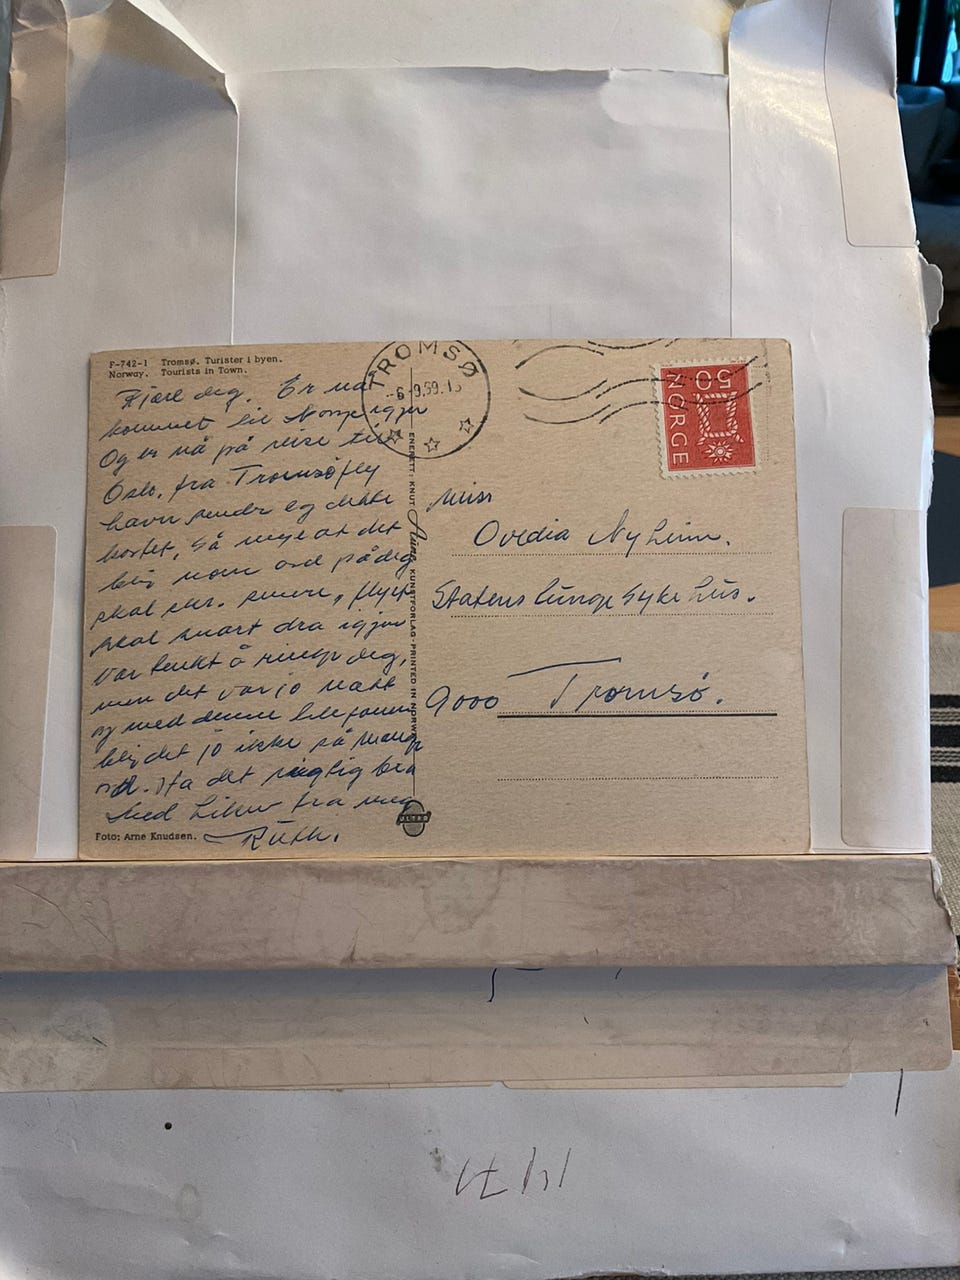 F-742-1 Tromsø. Turister i byen.
Norway. Tourists in Town.
Kjære deg. Er nå
kommet til Norge igjen
Og er nå på reise til
Oslo, fra Tromsø fly
havn sender eg dette
kortet, så mye at det
blij noen ord på deg
skal skr. senere, flyet
skal snart dra igjen
var tenkt å ringe deg,
men det var jo natt
og med denne telefonen
blij det jo ikke så mange
ord. Ha det riegtig bra
Med Hilsen fra meg
Ruth.
Foto: Arne Knudsen.
TROMSØ
6-9.69.1
ENERETT: KNUT Aune KUNSTFORLAG - PRINTED IN NORWAY
ULTRA
50
NORGE
Miss
Ovedia Nyheim.
Statens lunge sykehus.
9000 Tromsø.